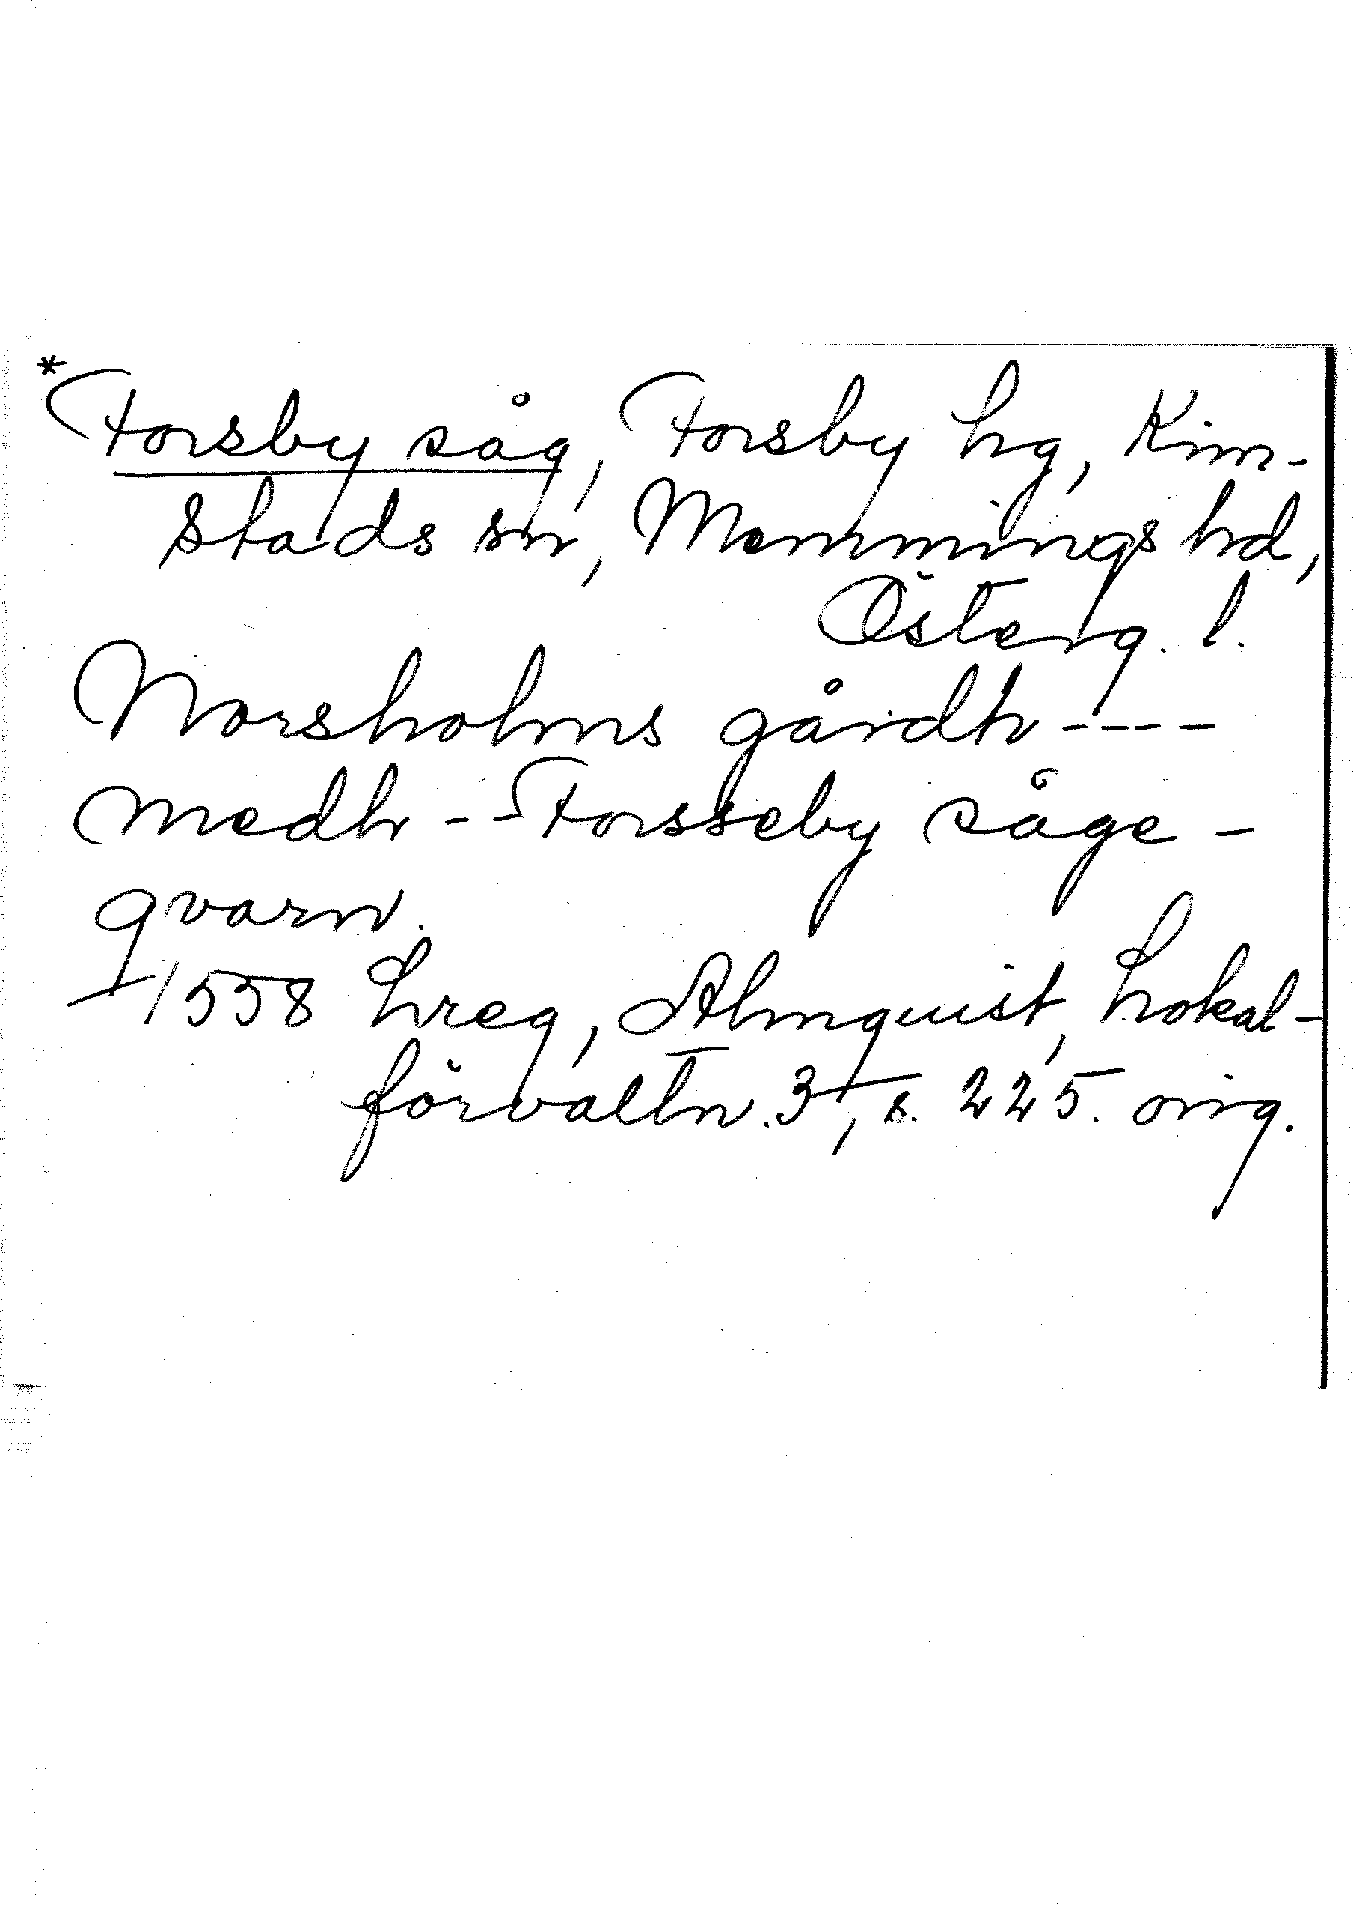 *Forsby såg, Forsby hg, Kim-
stads sn, Memmings hd,
Österg. l.
Norsholms gårdh ----
medh -- Forsseby såge-
qvarn.
1558 Lreg, Almquist, Lokal-
förvaltn. 3, s. 225. orig.